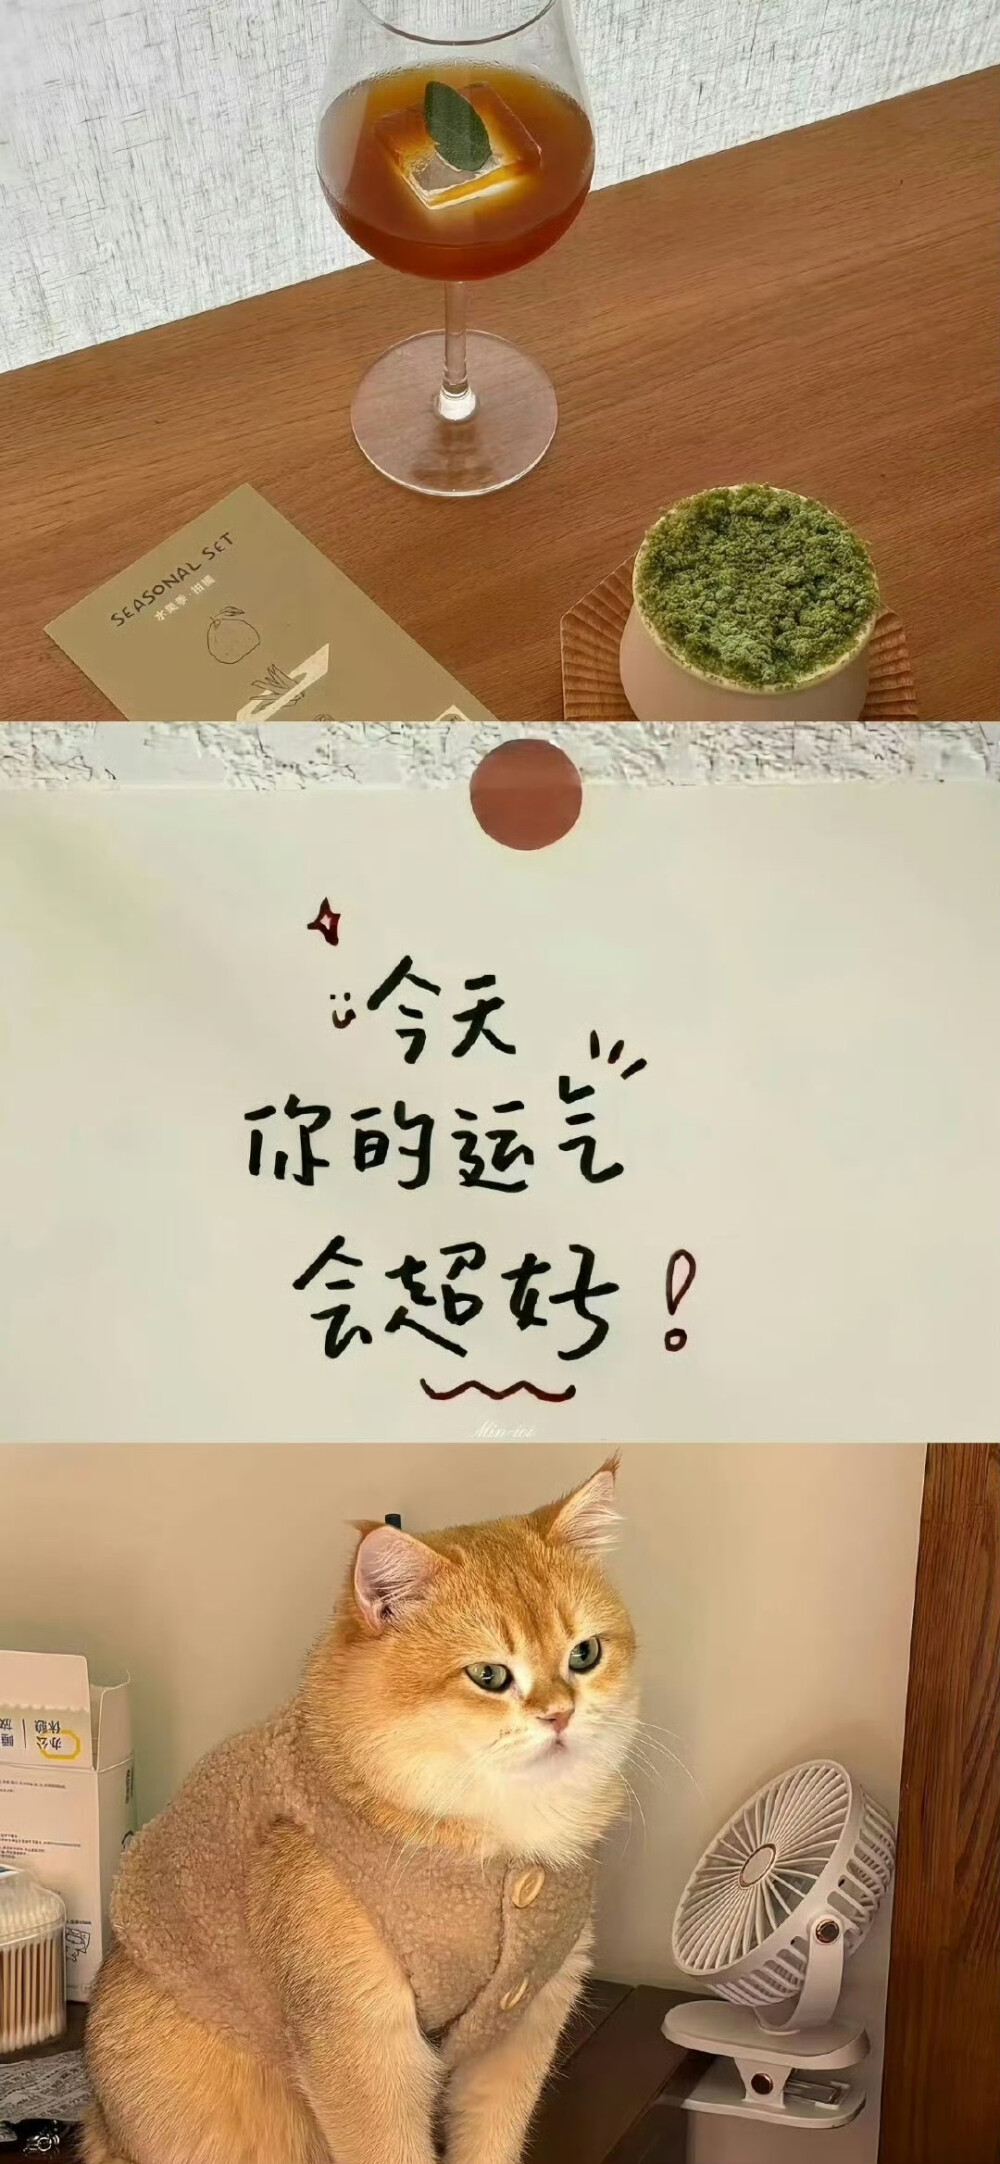 SEASONAL SET
水果季·柑橘
今天
你的运气
会超好!
Min-ici
办公
休憩
睡
放